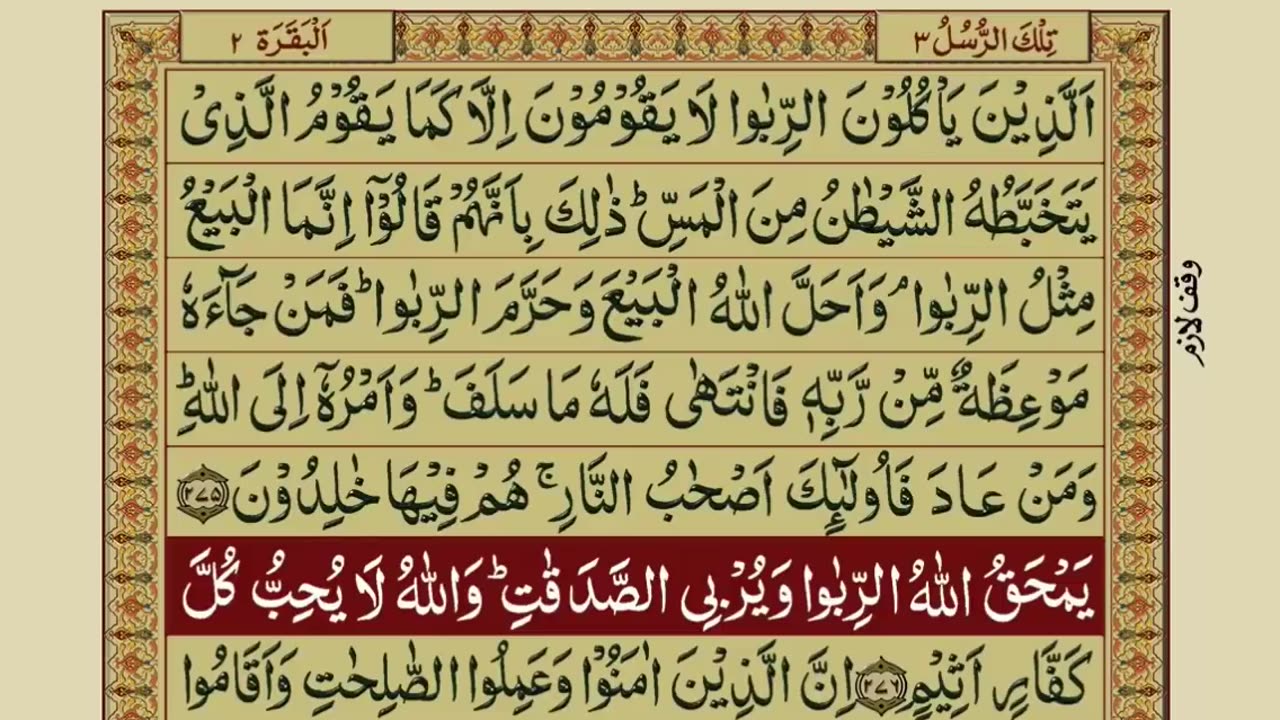 تِلْكَ الرُّسُلُ ٣
اَلْبَقَرَة ٢
اَلَّذِيْنَ يَاْكُلُوْنَ الرِّبٰوا لَا يَقُوْمُوْنَ اِلَّا كَمَا يَقُوْمُ الَّذِىْ
يَتَخَبَّطُهُ الشَّيْطٰنُ مِنَ الْمَسِّ ؕ ذٰلِكَ بِاَنَّهُمْ قَالُوْۤا اِنَّمَا الْبَيْعُ
مِثْلُ الرِّبٰوا ۘ وَاَحَلَّ اللّٰهُ الْبَيْعَ وَحَرَّمَ الرِّبٰوا ؕ فَمَنْ جَآءَهٗ
مَوْعِظَةٌ مِّنْ رَّبِّهٖ فَانْتَهٰى فَلَهٗ مَا سَلَفَ ؕ وَاَمْرُهٗۤ اِلَى اللّٰهِ ؕ
وَمَنْ عَادَ فَاُولٰٓئِكَ اَصْحٰبُ النَّارِ ۚ هُمْ فِيْهَا خٰلِدُوْنَ ﴿۲۷۵﴾
يَمْحَقُ اللّٰهُ الرِّبٰوا وَيُرْبِى الصَّدَقٰتِ ؕ وَاللّٰهُ لَا يُحِبُّ كُلَّ
كَفَّارٍ اَثِيْمٍ ﴿۲۷۶﴾ اِنَّ الَّذِيْنَ اٰمَنُوْا وَعَمِلُوا الصّٰلِحٰتِ وَاَقَامُوا
وقف لازم